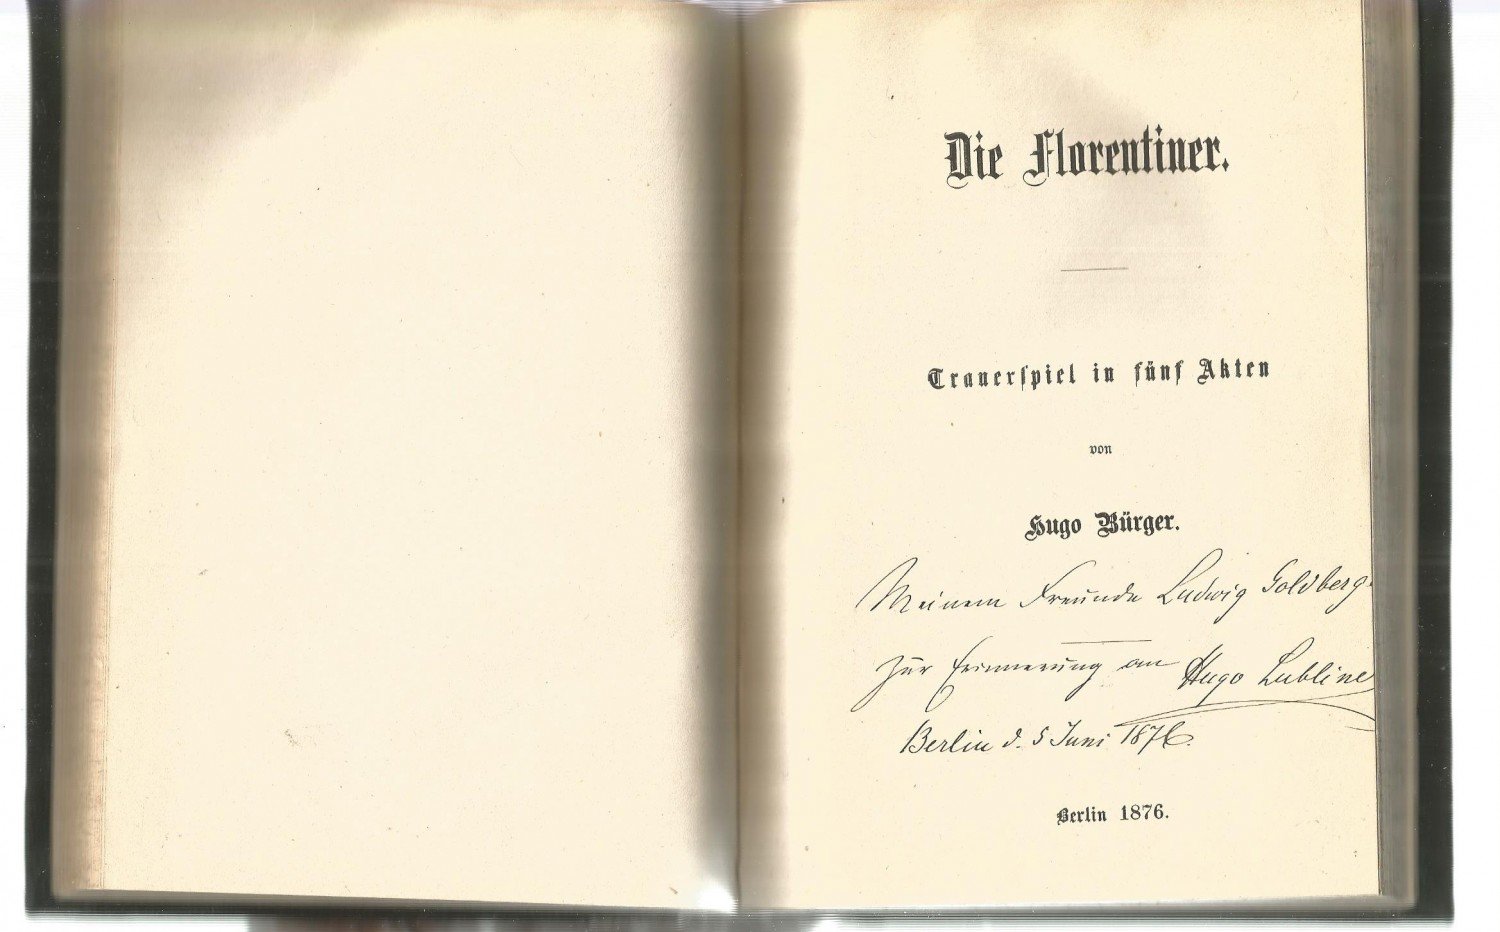 Die Florentiner.
Trauerspiel in fünf Akten
von
Hugo Bürger.
Meinem Freunde Ludwig Goldberg
zur Erinnerung an Hugo Lubliner
Berlin d. 5 Juni 1876.
Berlin 1876.